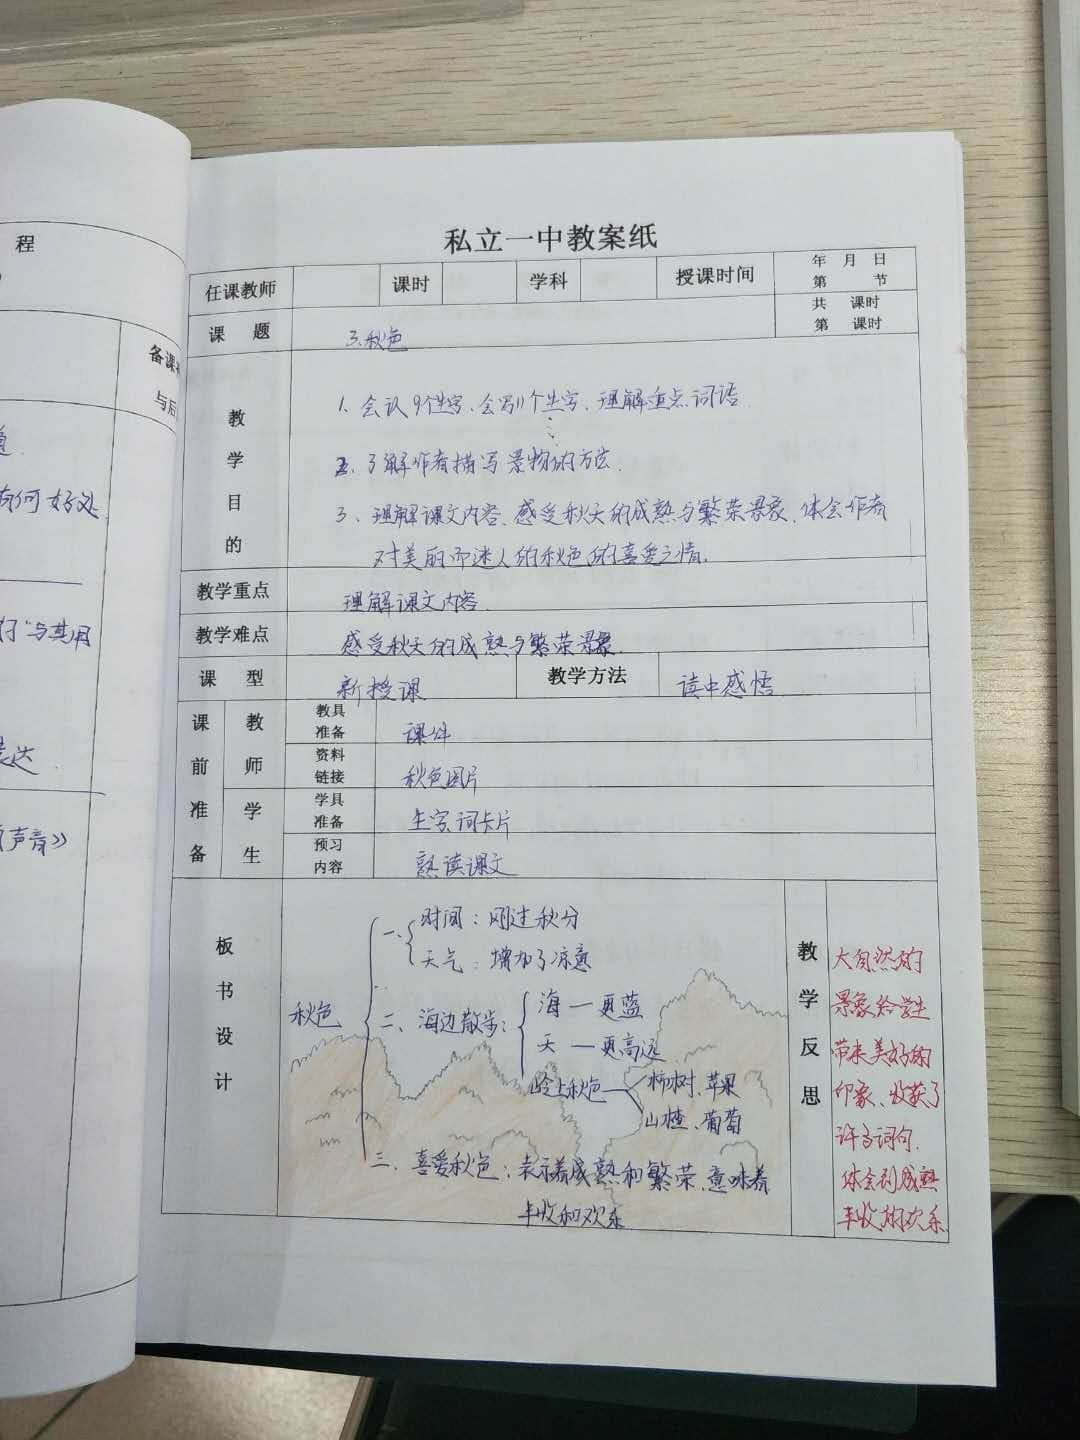 程
备课
与后
有何好处
行"与其用
表达
声音》
私立一中教案纸
任课教师 课时 学科 授课时间 年 月 日
第 节
课 题 3.秋色 共 课时
第 课时
教学目的
1、会认9个生字、会写11个生字、理解重点词语.
2、了解作者描写景物的方法.
3、理解课文内容、感受秋天的成熟与繁荣景象、体会作者
对美丽而迷人的秋色的喜爱之情.
教学重点 理解课文内容.
教学难点 感受秋天的成熟与繁荣景象.
课 型 新授课 教学方法 读中感悟
课前准备
教师
教具准备 课件
资料链接 秋色图片
学生
学具准备 生字词卡片
预习内容 熟读课文
板书设计
秋色
一、时间:刚过秋分
天气:增加了凉意
二、海边散步:海—更蓝
天—更高远
岭上秋色—柳树、苹果
山楂、葡萄
三、喜爱秋色:表示着成熟和繁荣、意味着
丰收和欢乐
教学反思
大自然的
景象给学生
带来美好的
印象、收获了
许多词句.
体会到成熟
丰收的欢乐.